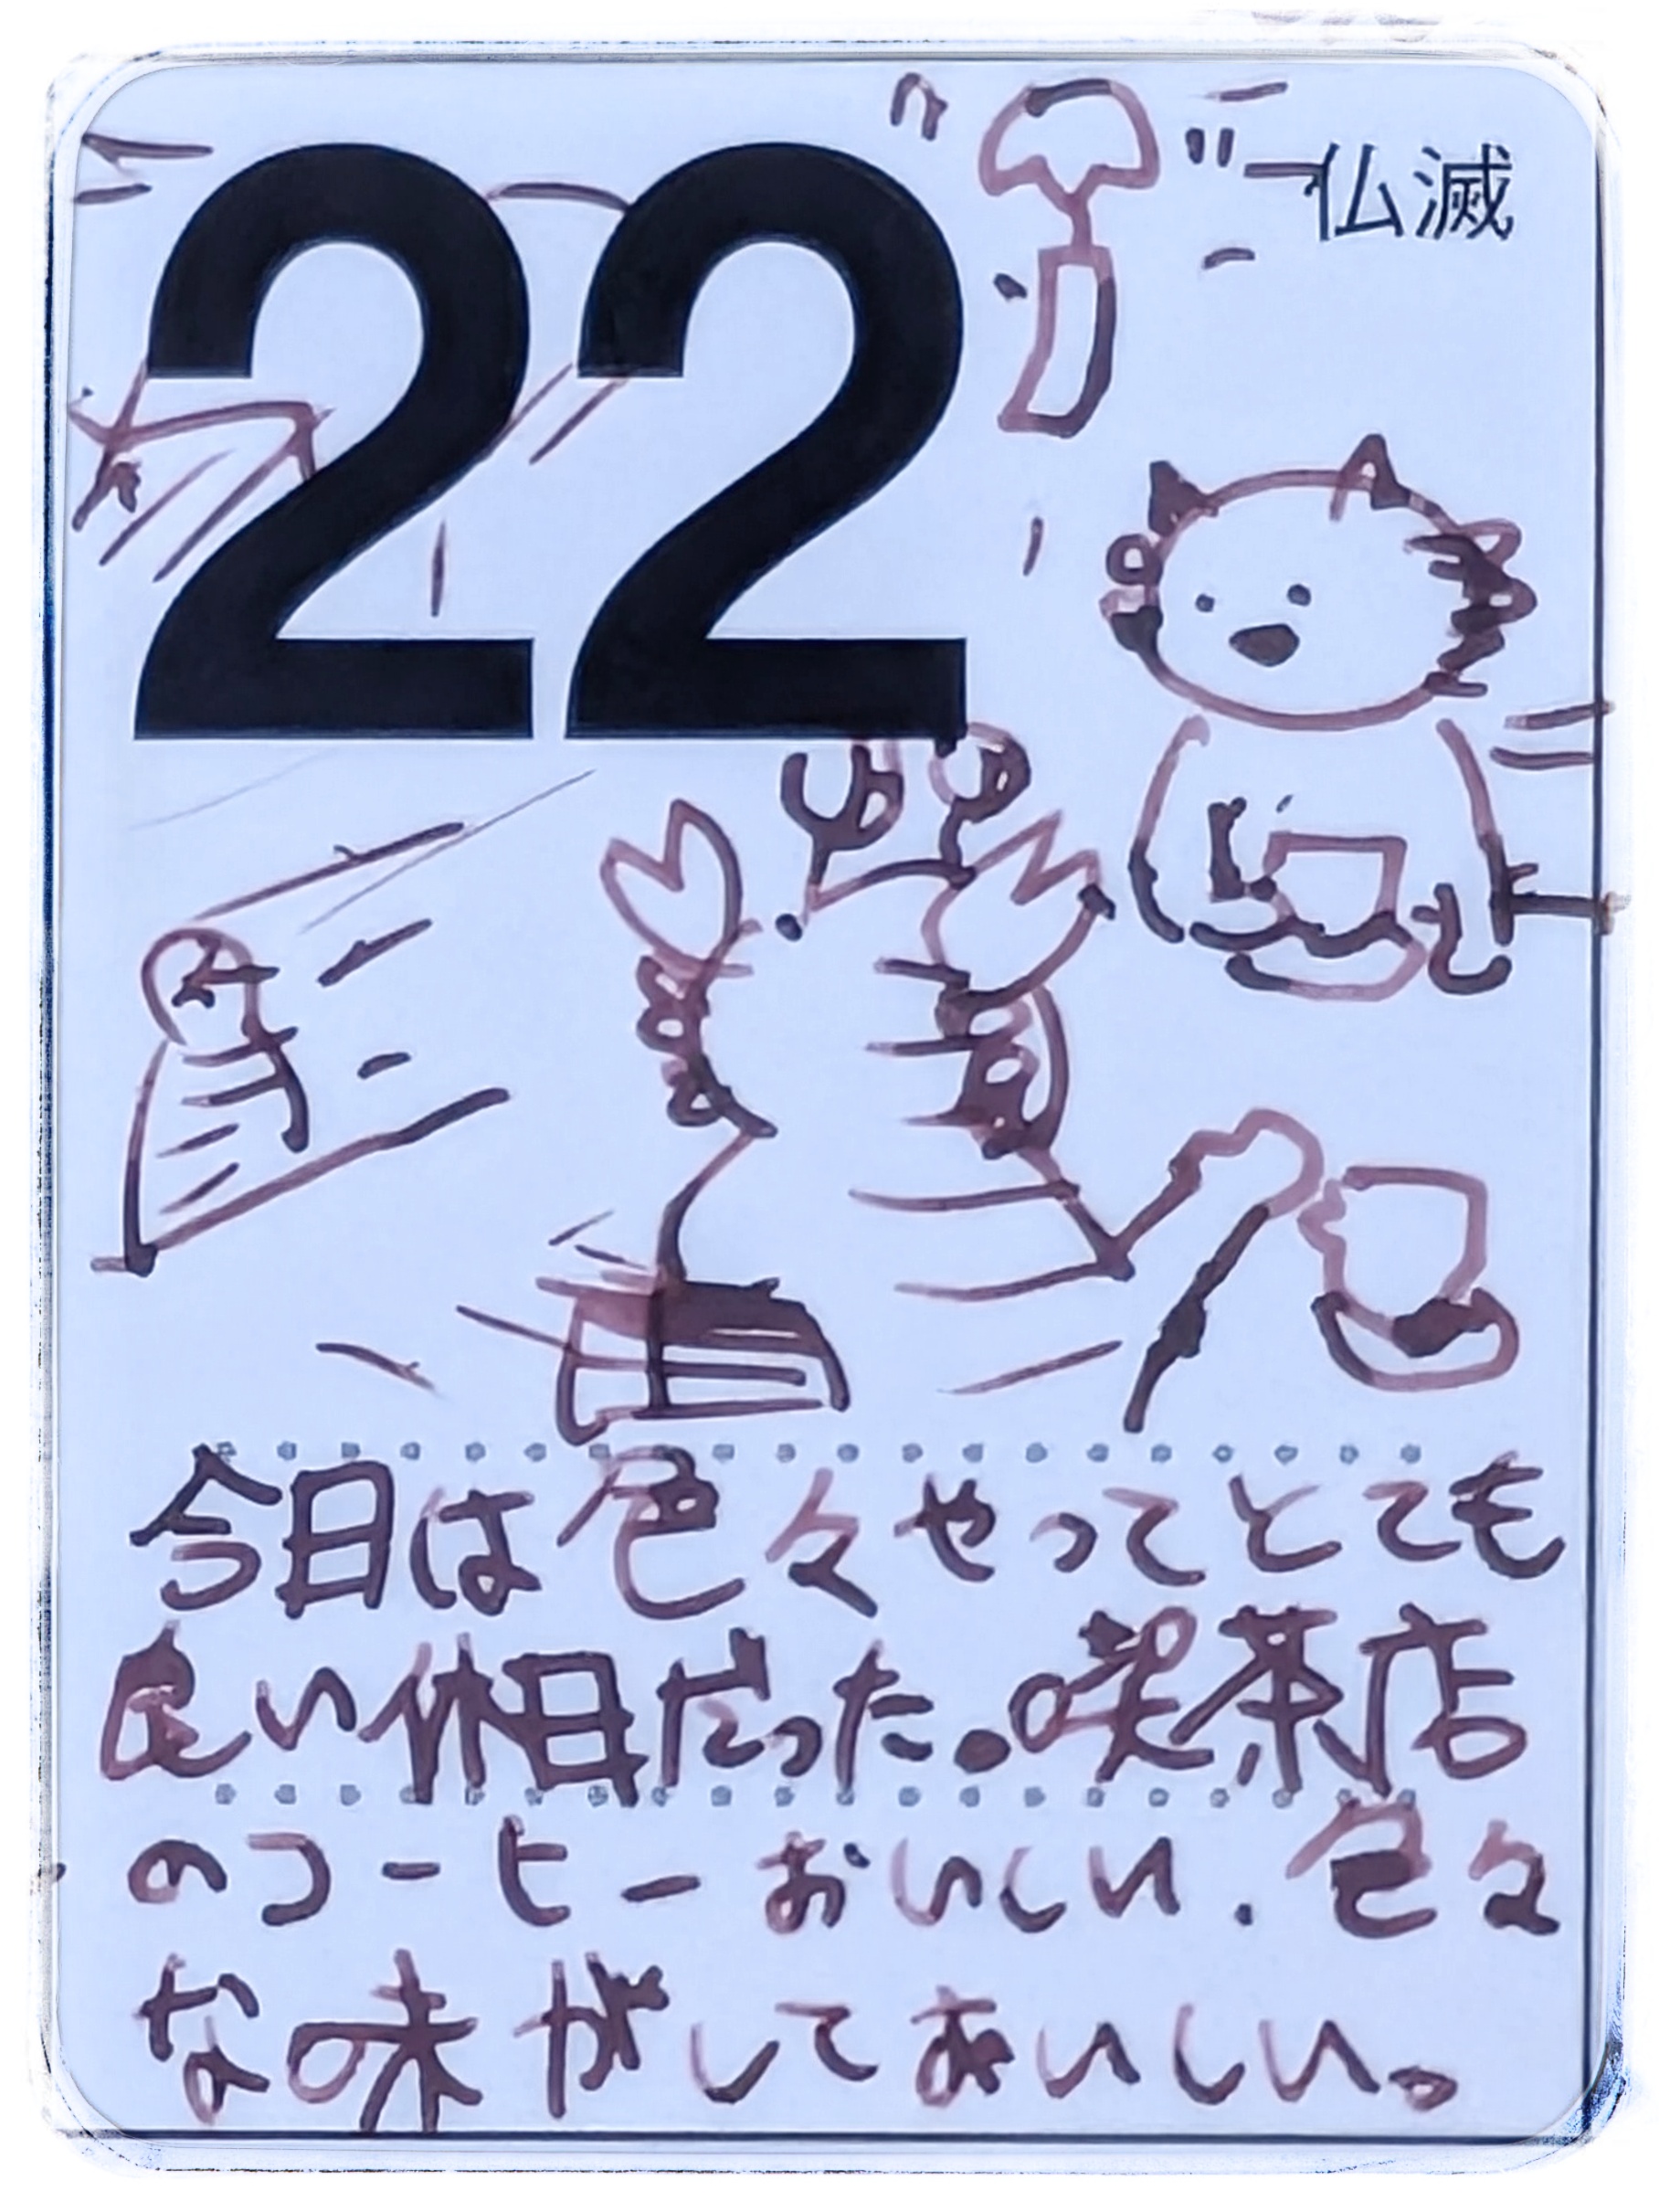 22
仏滅
今日は色々やってとても
良い休日だった。喫茶店
のコーヒーおいしい.色々
な味がしておいしい。